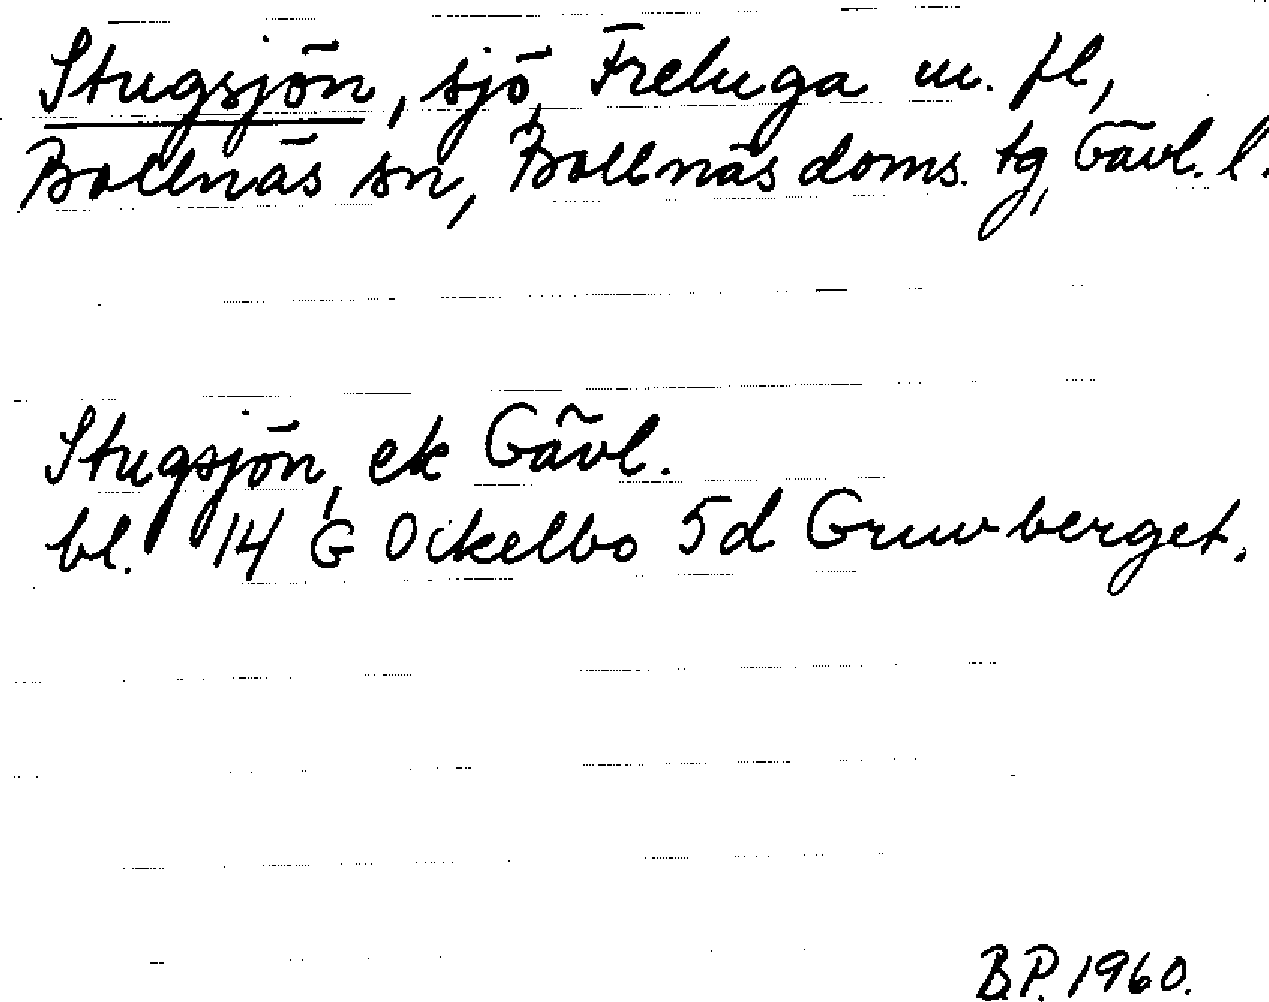 Stugsjön, sjö, Freluga m. fl,
Bollnäs sn, Bollnäs doms. tg, Gävl. l.
Stugsjön, ek Gävl.
bl. 14 G Ockelbo 5d Gruvberget.
B.P. 1960.